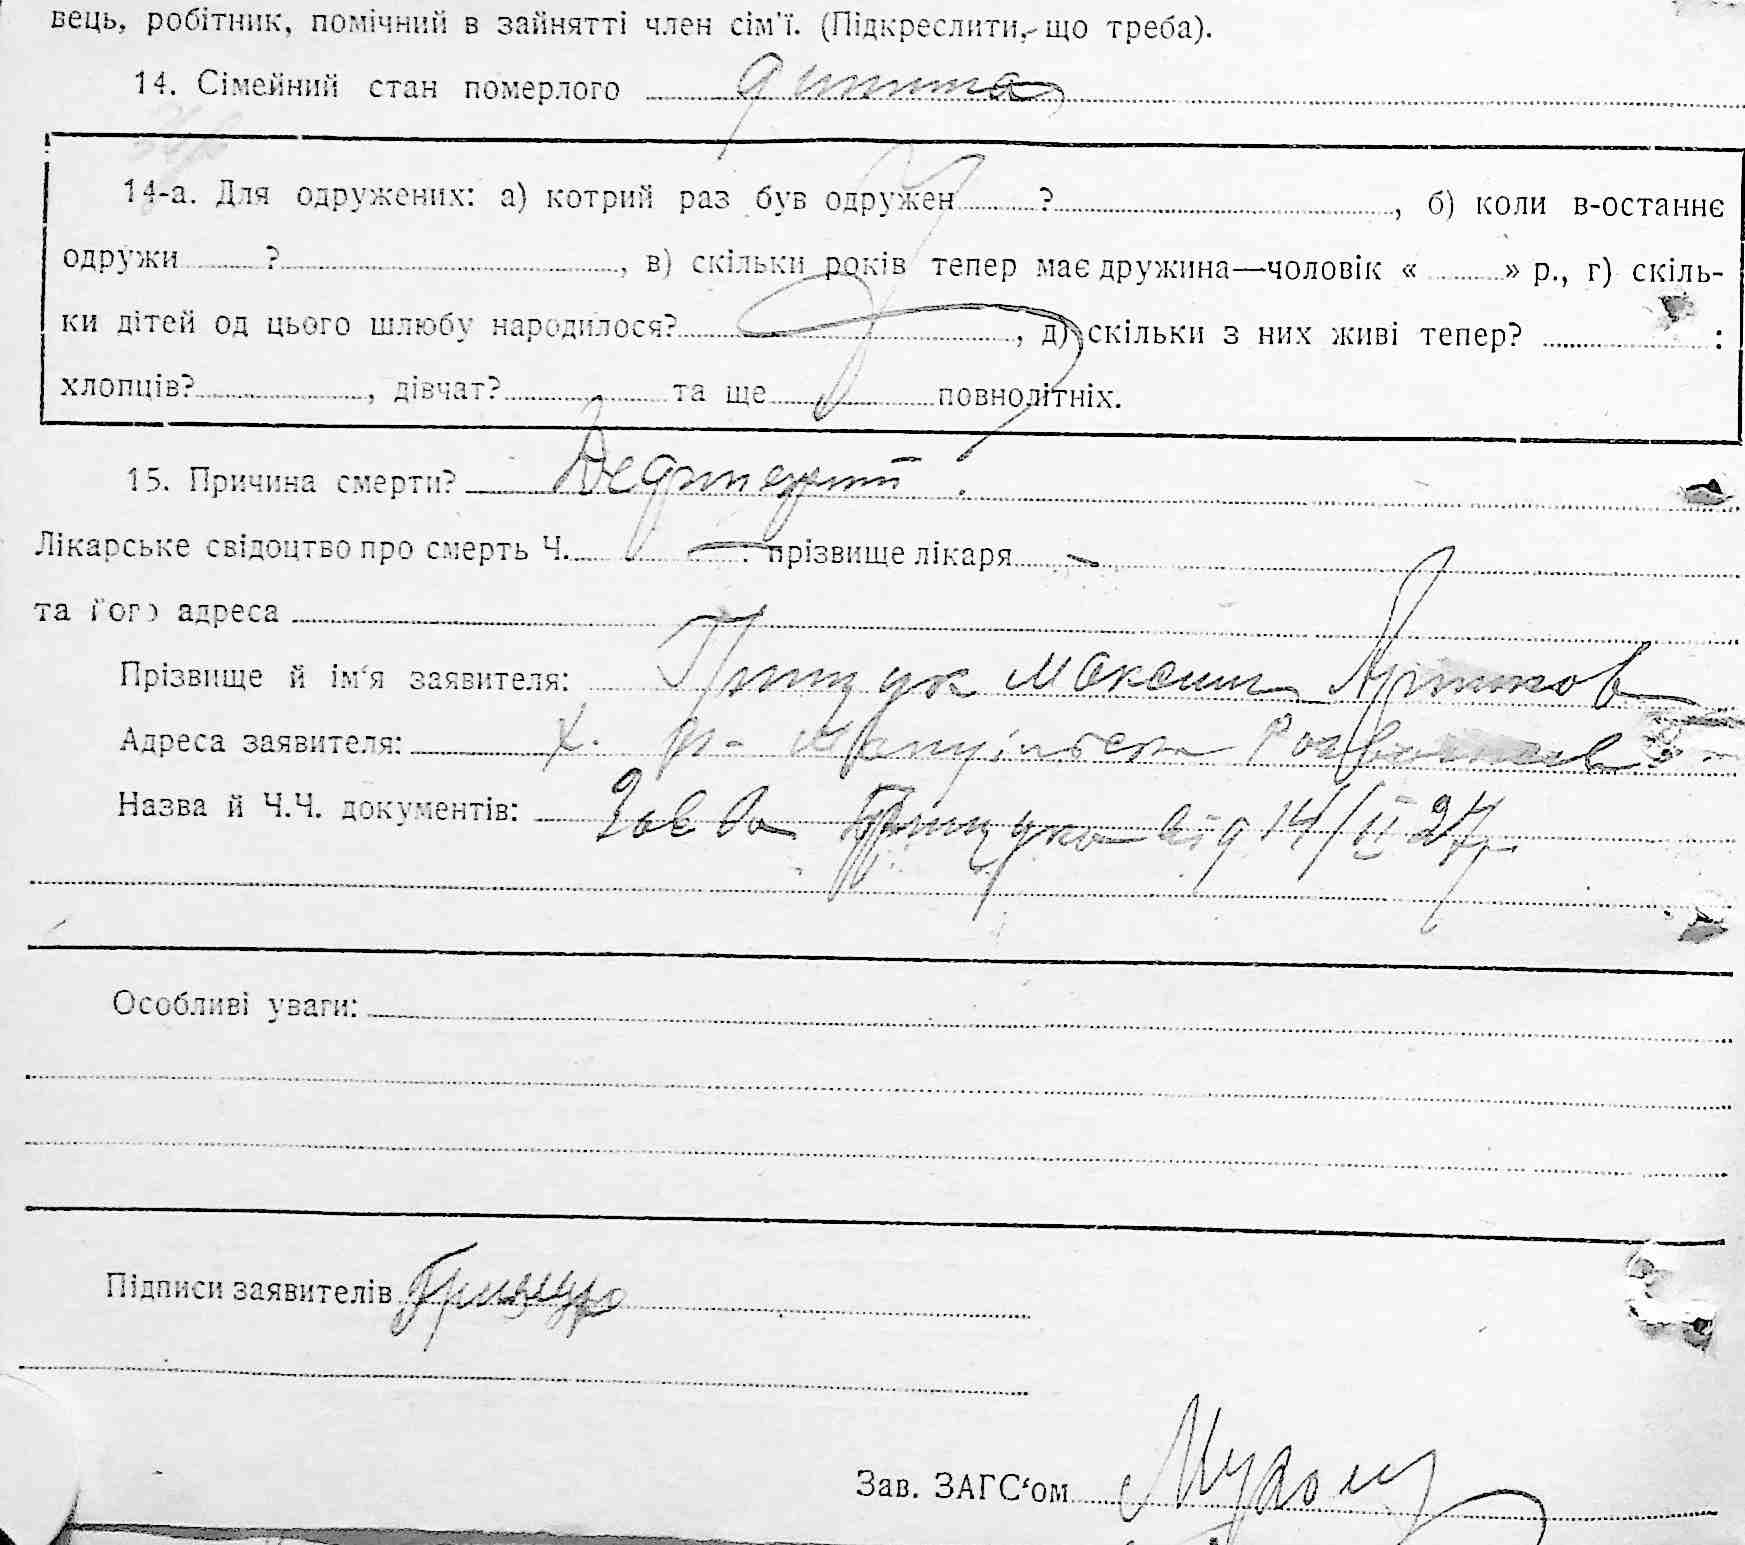 вець, робітник, помічний в зайнятті член сім'ї. (Підкреслити, що треба).
14. Сімейний стан померлого дитина
14-а. Для одружених: а) котрий раз був одружен ? , б) коли в-останнє
одружи ? , в) скільки років тепер має дружина—чоловік « » р., г) скіль-
ки дітей од цього шлюбу народилося? , д) скільки з них живі тепер? :
хлопців? , дівчат? та ще повнолітніх.
15. Причина смерти?
Лікарське свідоцтво про смерть Ч. — : прізвище лікаря —
та його адреса
Прізвище й ім'я заявителя: Грищук Максим
Адреса заявителя: х.
Назва й Ч.Ч. документів: Заява Грищука від 14/II 27р.
Особливі уваги:
Підписи заявителів Грищук
Зав. ЗАГС'ом